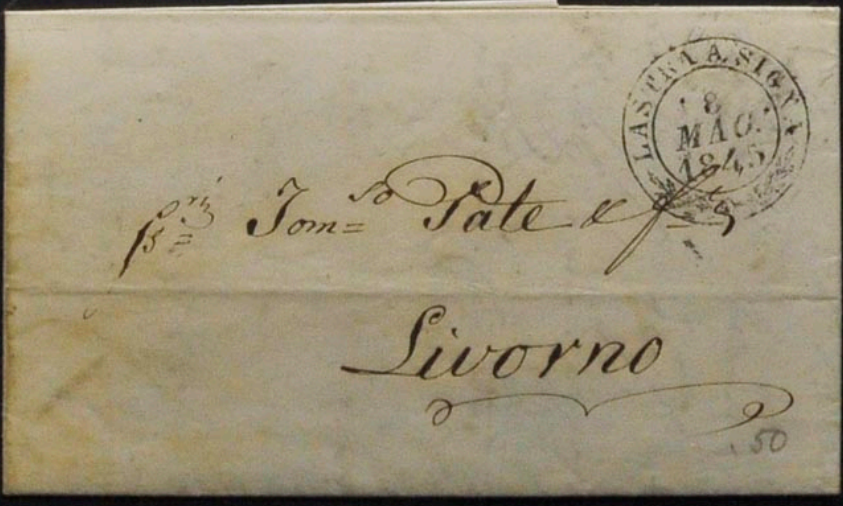 LASTRA A SIGNA
8
MAG.
1845
Tom=so Pate & f
Livorno
.50